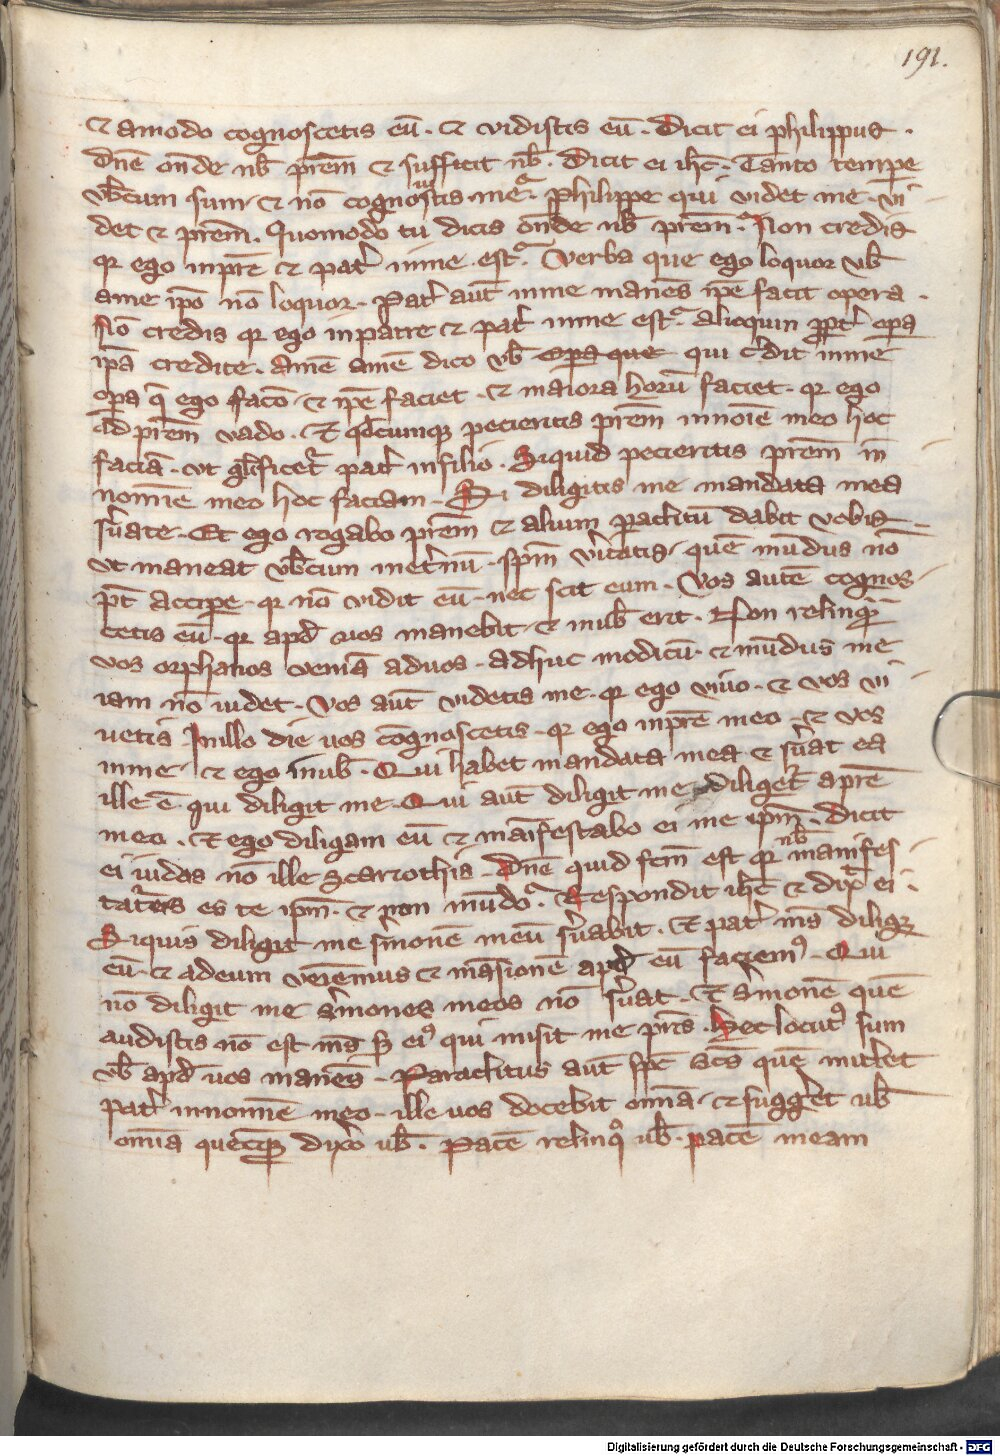 191.
et amodo cognoscetis eū. et vidistis eū. Dicit ei philippus.
dn̄e on̄de nb̄ prēm et sufficit nb̄. Dicit ei ih̄c. Tanto tempe
vb̄cum sum. et nō cognouistis me? Philippe qui videt me. vi
det et prēm. Quomodo tu dicis on̄de nb̄ prēm? Non credis
qr ego in prē et pat̄ in me est? Verba que ego loquor vb̄
a me ip̄o nō loquor. Pat̄ aut̄ in me manēs ip̄e facit opera.
Nō credis qr ego in patre et pat̄ in me est? alioquin ppt̄ opa
ip̄a credite. Amē amē dico vb̄ opa que qui c̄dit in me
opa q̄ ego facō et ip̄e faciet. et maiora horū faciet. qr ego
ad prēm vado. Et qdcumqꝫ pecieritis prēm in noīe meo hoc
faciā. vt gl̄ificet̄ pat̄ in filio. Siquid pecieritis prēm in
nomīe meo hoc faciam. Si diligitis me mandata mea
s̄uate. Et ego rogabo prēm et alium paclitū dabit vobis
vt maneat vb̄cum in et̄nū. sp̄m v̄itatis. quē mūdus nō
pt̄ accipe. qr nō vidit eū. nec scit eum. Vos autē cognos
cetis eū. qr apd̄ vos manebit. et in vb̄ erit. Non relinquā
vos orphanos veniā ad vos. adhuc modicū. et mūdus me
iam nō uidet. Vos aut̄ videtis me. qr ego viuo. et vos vi
uetis. In illo die uos cōgnoscetis. qr ego in prē meo. et vos
in me. et ego in ub̄. Qui habet mandata mea et s̄uat ea
ille ē qui diligit me. Qui aut̄ diligit me diliget̄ a prē
meo. Et ego diligam eū et manifestabo ei me ip̄m. Dicit
ei iudas nō ille scariothis. Dn̄e quid fcm̄ est qr nb̄ manifes
tat̄us es te ip̄m. et non mūdo? Respondit ih̄c et dix̄ ei.
Siquis diligit me s̄monē meū s̄uabit. Et pat̄ ms̄ diligꝫ
eū. et ad eum veniemus et mansionē apd̄ eū faciemꝰ. Qui
nō diligit me s̄mones meos nō s̄uat. Et s̄monē quē
audistis nō est ms̄ sꝫ eiꝰ qui misit me pris̄. Hec locutꝰ sum
vb̄ apd̄ uos manēs. Paraclitus aut̄ sp̄c scs̄ quē mittet
pat̄ in nomīe meo. ille uos docebit omīa. et sugḡet ub̄
omīa quecūqꝫ dixō ub̄. Pacē relinqº ub̄. pacē meam
Digitalisierung gefördert durch die Deutsche Forschungsgemeinschaft - DFG